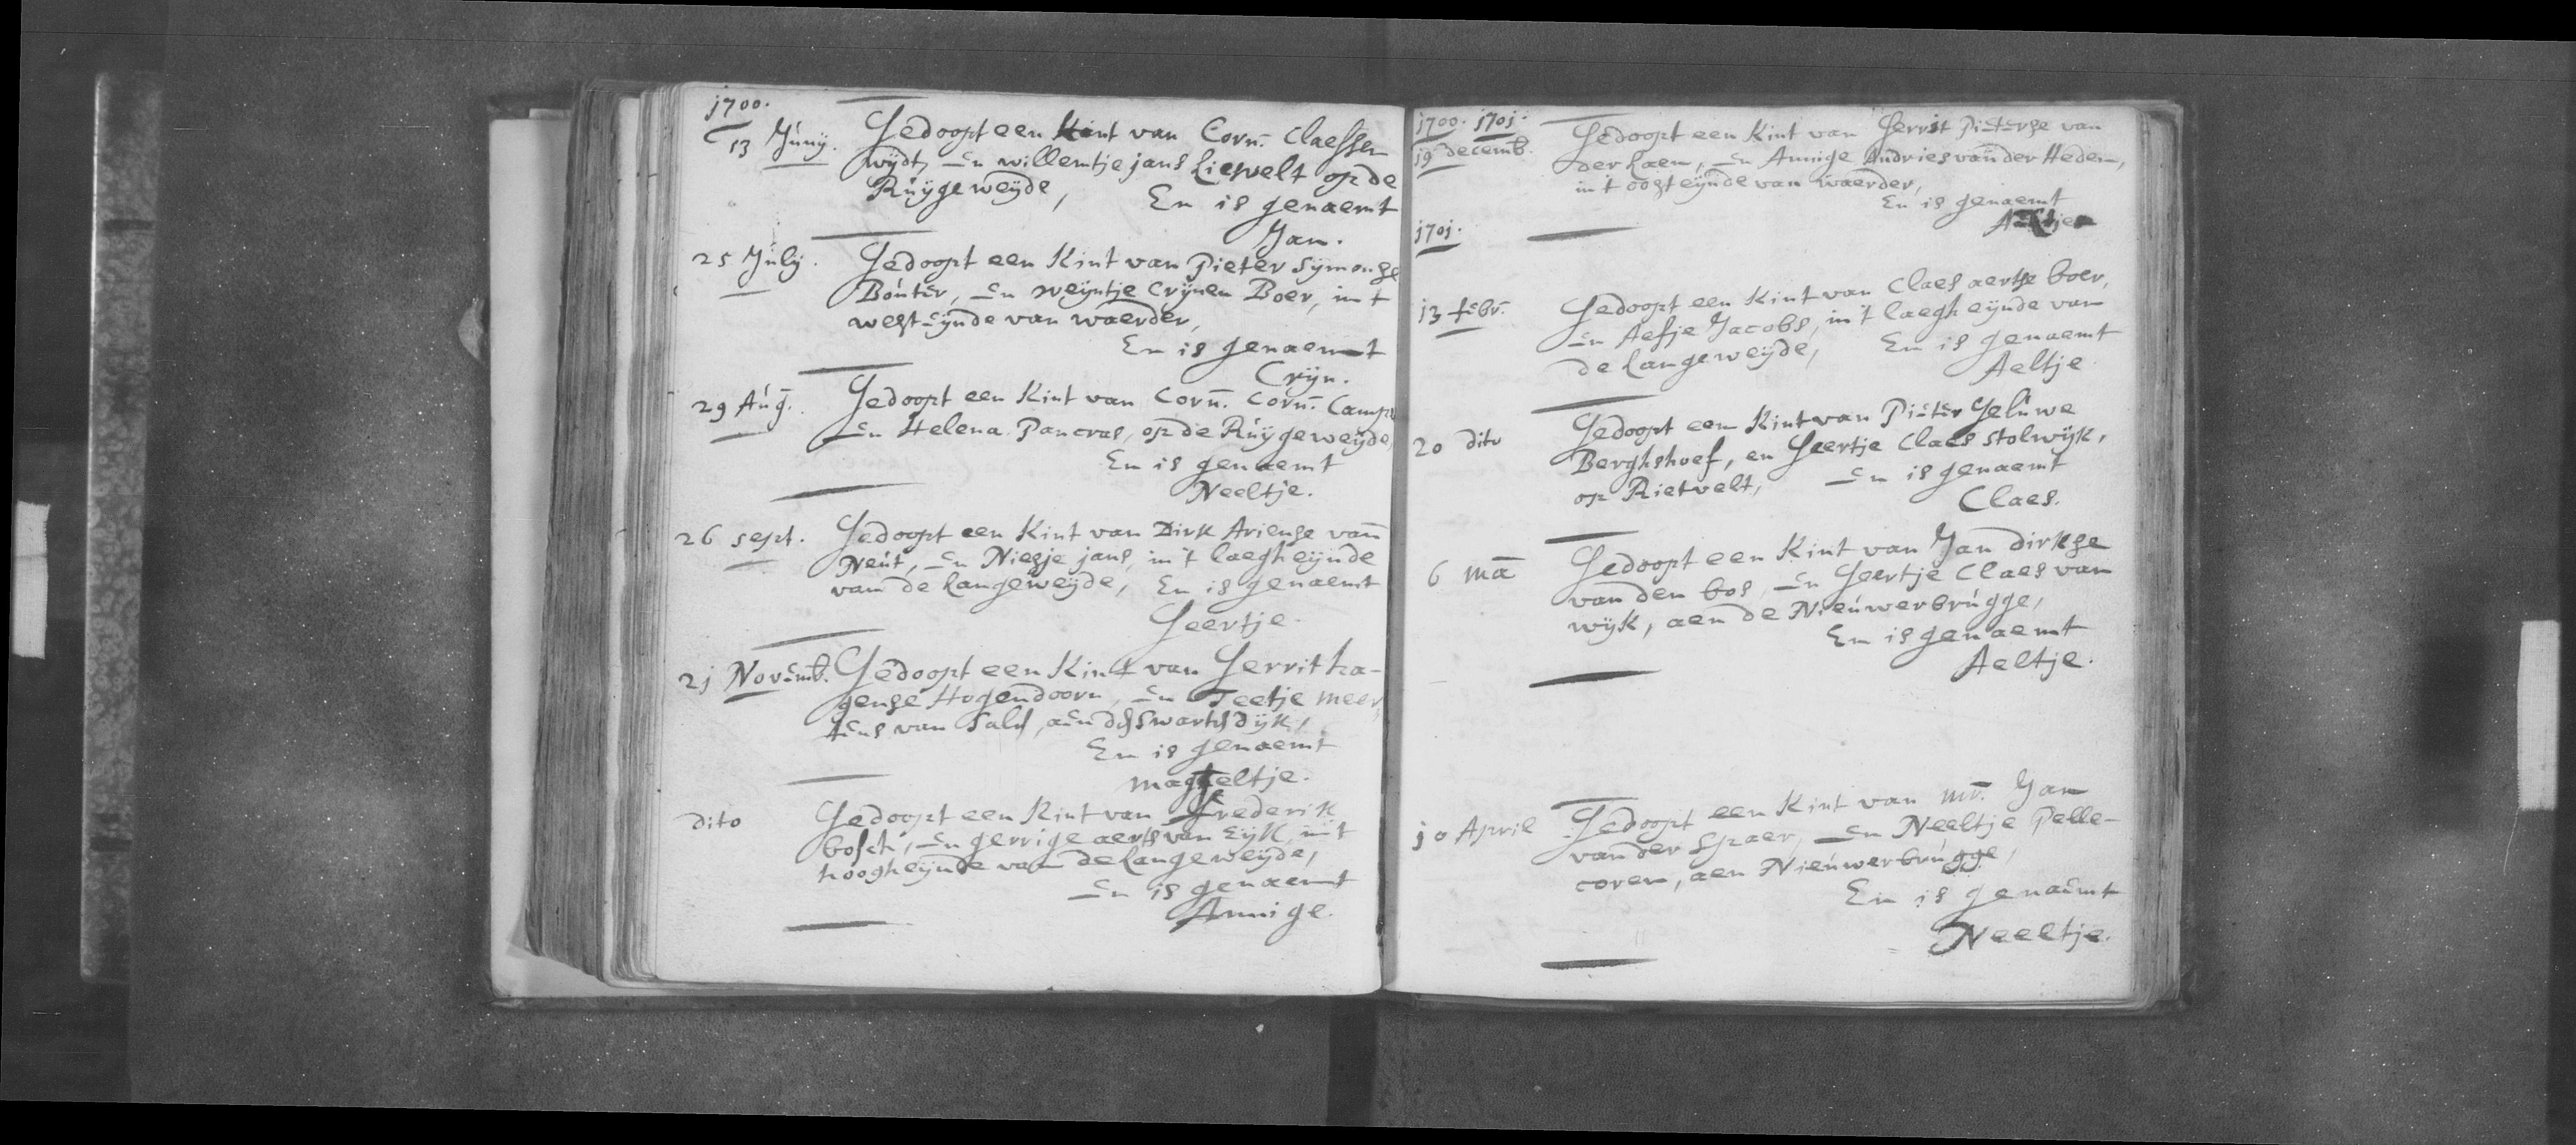 1700.
13 Juny. Gedoopt een Kint van Corn. Claessen
wydt, En willemtje jans Liewelt op de
Ruygeweyde, En is genaemt
Jan.
25 July. Gedoopt een Kint van Pieter Symonse
Bouter, En weyntje Crynen Boer, int
westeynde van waerder,
En is genaemt
Cryn.
29 Aug. Gedoopt een Kint van Corn. Corn. Camp
En Helena Pancras, op de Ruygeweyde,
En is genaemt
Neeltje.
26 sept. Gedoopt een Kint van Dirk Ariense van
Neut, En Niesje jans, in't laegh eynde
van de Langeweyde, En is genaemt
Geertje.
21 Novemb. Gedoopt een Kint van Gerrit ha-
gense Hogendoorn, En Teetje meer,
tens van Sale, aen de Swarte dyk,
En is genaemt
magteltje.
dito Gedoopt een Kint van Frederik
bosch, En gerrige aerts van Eyk, int
hoogh eynde van de Langeweyde,
En is genaemt
Annige.
1700. 1701.
19 decemb. Gedoopt een Kint van Gerrit Pieterse van
der Laen, En Annige Andries van der Heden,
in't oosteynde van waerder,
En is genaemt
1701.
13 febr. Gedoopt een Kint van Claes aertse boer,
En Aefje Jacobs, in't laegh eynde van
de Langeweyde, En is genaemt
Aeltje.
20 dito Gedoopt een Kint van Pieter Geluwe
Berghshoef, en Geertje Claes stolwyk,
op Rietvelt, En is genaemt
Claes.
6 ma Gedoopt een Kint van Jan dirkse
van den bos, En Geertje Claes van
wyk, aen de Nieuwerbrugge,
En is genaemt
Aeltje.
10 April Gedoopt een Kint van mr. Jan
van der Spaer, En Neeltje Pelle-
coren, aen Nieuwerbrugge,
En is genaemt
Neeltje.